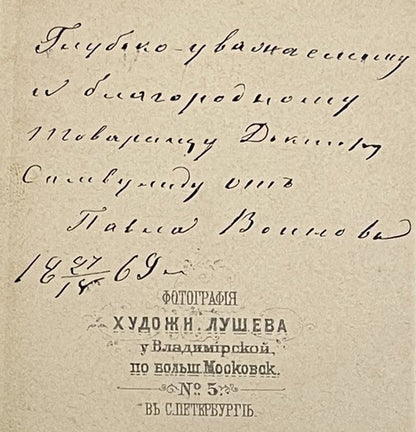 Глубоко-уважаемому
и благородному
товарищу Доктору
от
Павла Воинова
18 27/18 69 г
ФОТОГРАФІЯ
ХУДОЖН. ЛУШЕВА
у Владимірской,
по больш. Московск.
№ 5.
ВЪ С.ПЕТЕРБУРГѢ.